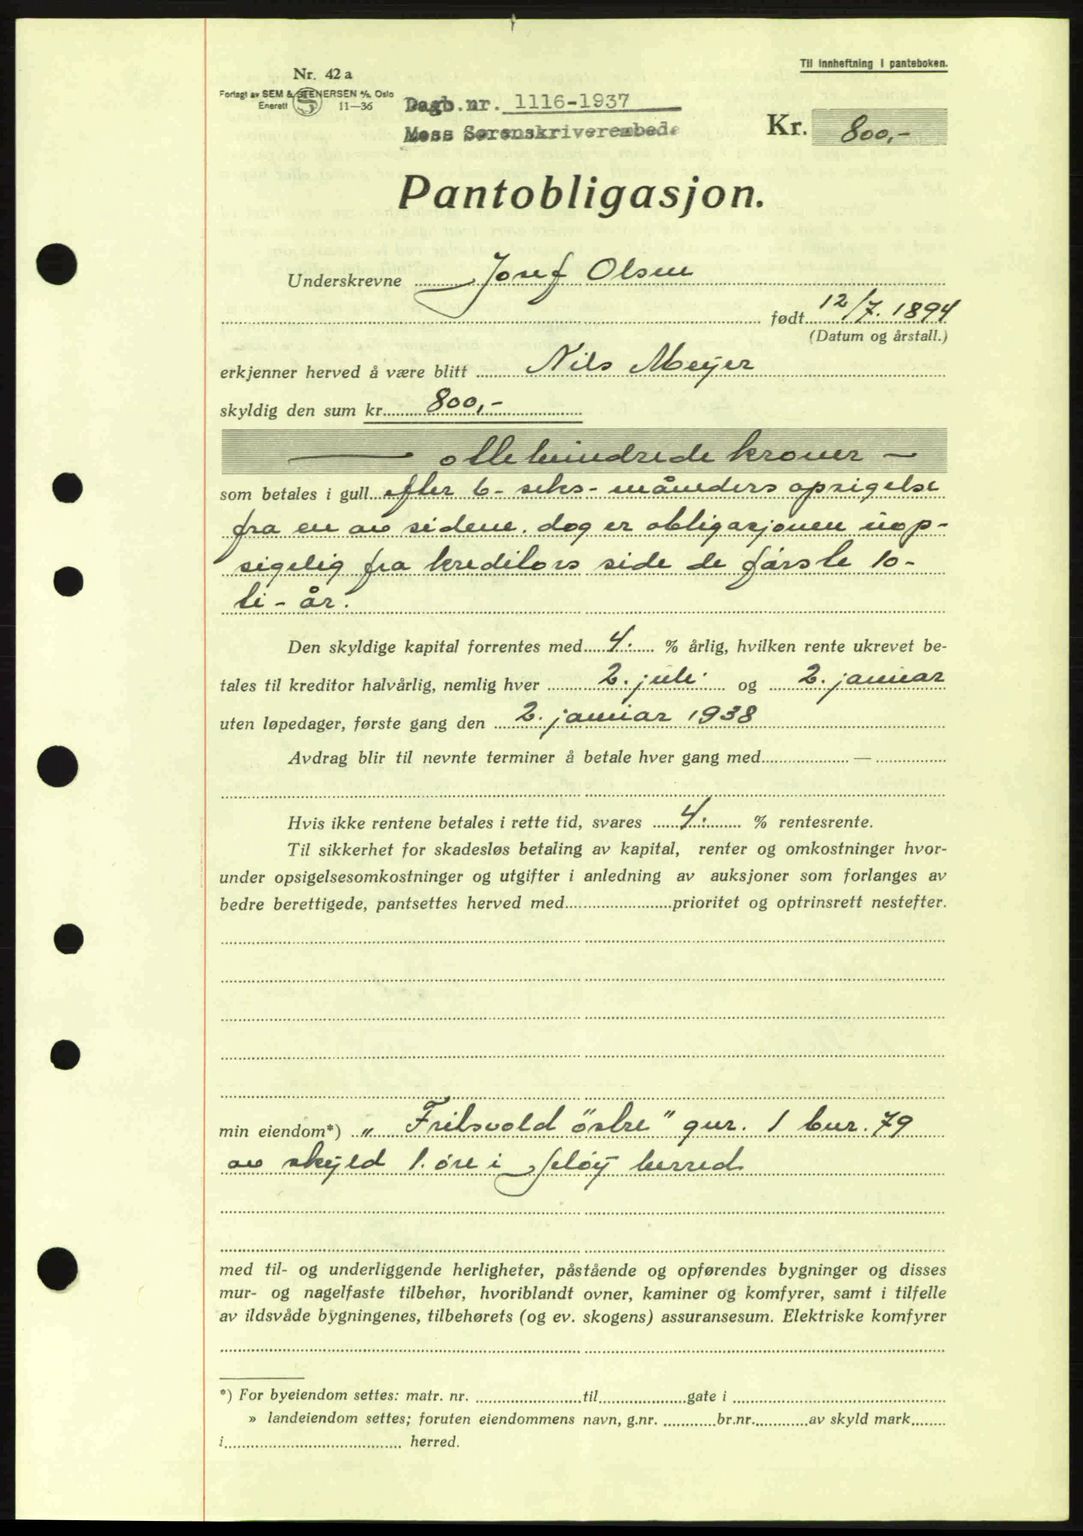 Til innheftning i panteboken.
Nr. 42 a
Forlagt av SEM & STENERSEN A/S, Oslo
Enerett 11—36
Dagb.nr. 1116-1937
Moss Sorenskriverembede
Kr. 800,-
Pantobligasjon.
Underskrevne Josef Olsen
født 12/7. 1894
(Datum og årstall.)
erkjenner herved å være blitt Nils Meyer
skyldig den sum kr. 800,-
— ottehundrede kroner —
som betales i gull efter 6- seks- måneders opsigelse
fra en av sidene. dog er obligasjonen uop-
sigelig fra kreditors side de første 10-
ti- år.
Den skyldige kapital forrentes med 4. % årlig, hvilken rente ukrevet be-
tales til kreditor halvårlig, nemlig hver 2. juli og 2. januar
uten løpedager, første gang den 2. januar 1938
Avdrag blir til nevnte terminer å betale hver gang med —
Hvis ikke rentene betales i rette tid, svares 4. % rentesrente.
Til sikkerhet for skadesløs betaling av kapital, renter og omkostninger hvor-
under opsigelsesomkostninger og utgifter i anledning av auksjoner som forlanges av
bedre berettigede, pantsettes herved med prioritet og optrinsrett nestefter.
min eiendom*) „ Fritsvold östre" gnr. 1 bnr. 79
av skyld 1. øre i Jeløy herred
med til- og underliggende herligheter, påstående og opførendes bygninger og disses
mur- og nagelfaste tilbehør, hvoriblandt ovner, kaminer og komfyrer, samt i tilfelle
av ildsvåde bygningenes, tilbehørets (og ev. skogens) assuransesum. Elektriske komfyrer
*) For byeiendom settes: matr. nr. til gate i
» landeiendom settes; foruten eiendommens navn, g.nr. br.nr. av skyld mark
i herred.